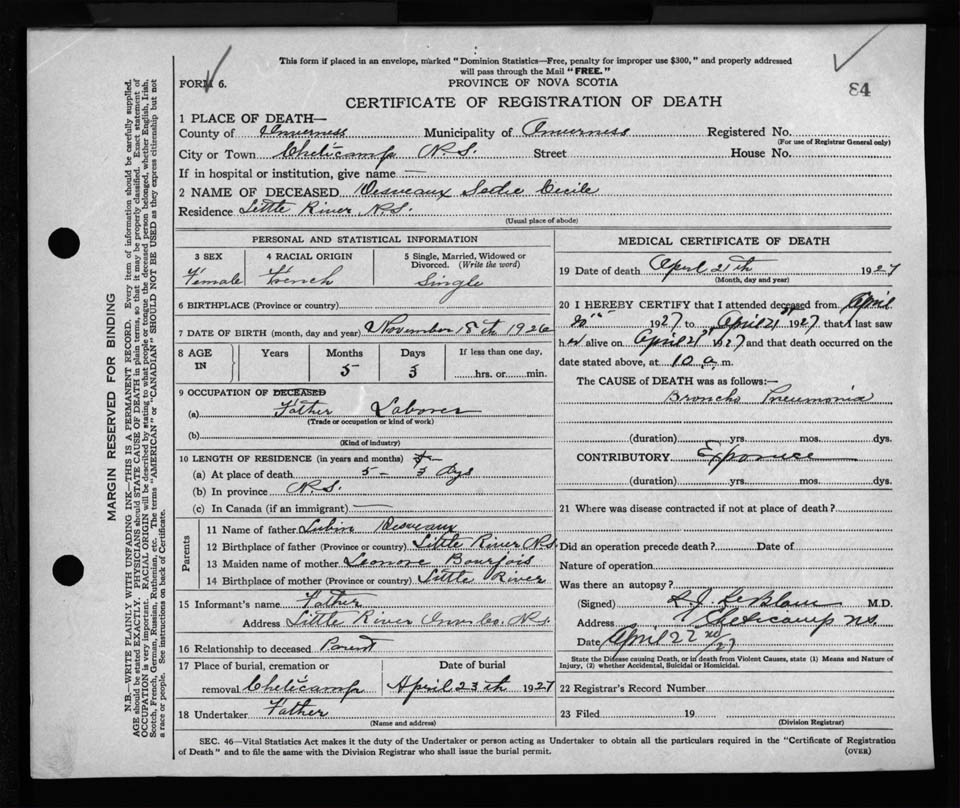 This form if placed in an envelope, marked "Dominion Statistics—Free, penalty for improper use $300," and properly addressed
will pass through the Mail "FREE."
FORM 6.
PROVINCE OF NOVA SCOTIA
84
CERTIFICATE OF REGISTRATION OF DEATH
1 PLACE OF DEATH—
County of Inverness Municipality of Inverness Registered No.
(For use of Registrar General only)
City or Town Cheticamp N.S. Street House No.
If in hospital or institution, give name —
2 NAME OF DECEASED Desveaux Sadie Cecile
Residence Little River N.S.
(Usual place of abode)
PERSONAL AND STATISTICAL INFORMATION
3 SEX 4 RACIAL ORIGIN 5 Single, Married, Widowed or Divorced. (Write the word)
Female French Single
6 BIRTHPLACE (Province or country)
7 DATE OF BIRTH (month, day and year) November 18th 1926
8 AGE IN Years Months Days If less than one day,
5 3 hrs. or min.
9 OCCUPATION OF DECEASED
(a) Father Laborer
(Trade or occupation or kind of work)
(b)
(Kind of industry)
10 LENGTH OF RESIDENCE (in years and months)
(a) At place of death 5 - 3 Dys
(b) In province N.S.
(c) In Canada (if an immigrant) —
Parents
11 Name of father Lubin Desveaux
12 Birthplace of father (Province or country) Little River N.S.
13 Maiden name of mother Leonore Bourjois
14 Birthplace of mother (Province or country) Little River
15 Informant's name Father
Address Little River Inver Co. N.S.
16 Relationship to deceased Parent
17 Place of burial, cremation or Date of burial
removal Cheticamp April 23th 1927
18 Undertaker Father
(Name and address)
MEDICAL CERTIFICATE OF DEATH
19 Date of death April 21th 1927
(Month, day and year)
20 I HEREBY CERTIFY that I attended deceased from April
20th 1927 to April 21st 1927 that I last saw
her alive on April 21st 1927 and that death occurred on the
date stated above, at 10 a. m.
The CAUSE OF DEATH was as follows:—
Broncho Pneumonia
(duration) yrs. mos. dys.
CONTRIBUTORY Exposure
(duration) yrs. mos. dys.
21 Where was disease contracted if not at place of death?
Did an operation precede death? Date of
Nature of operation
Was there an autopsy?
(Signed) L. J. LeBlanc M.D.
Address Cheticamp N.S.
Date April 22nd/27
State the Disease causing Death, or in death from Violent Causes, state (1) Means and Nature of
Injury, (2) whether Accidental, Suicidal or Homicidal.
22 Registrar's Record Number
23 Filed 19
(Division Registrar)
SEC. 46—Vital Statistics Act makes it the duty of the Undertaker or person acting as Undertaker to obtain all the particulars required in the "Certificate of Registration
of Death" and to file the same with the Division Registrar who shall issue the burial permit.
(OVER)
MARGIN RESERVED FOR BINDING
N.B.—WRITE PLAINLY WITH UNFADING INK—THIS IS A PERMANENT RECORD. Every item of information should be carefully supplied.
AGE should be stated EXACTLY. PHYSICIANS should STATE CAUSE OF DEATH in plain terms, so that it may be properly classified. Exact statement of
OCCUPATION is very important. RACIAL ORIGIN will be described by stating to what people or tongue the deceased person belonged, whether English, Irish,
Scotch, French, German, Russian, Ruthenian, etc. The terms "AMERICAN" or "CANADIAN" SHOULD NOT BE USED as they express citizenship but not
a race or people. See instructions on back of Certificate.